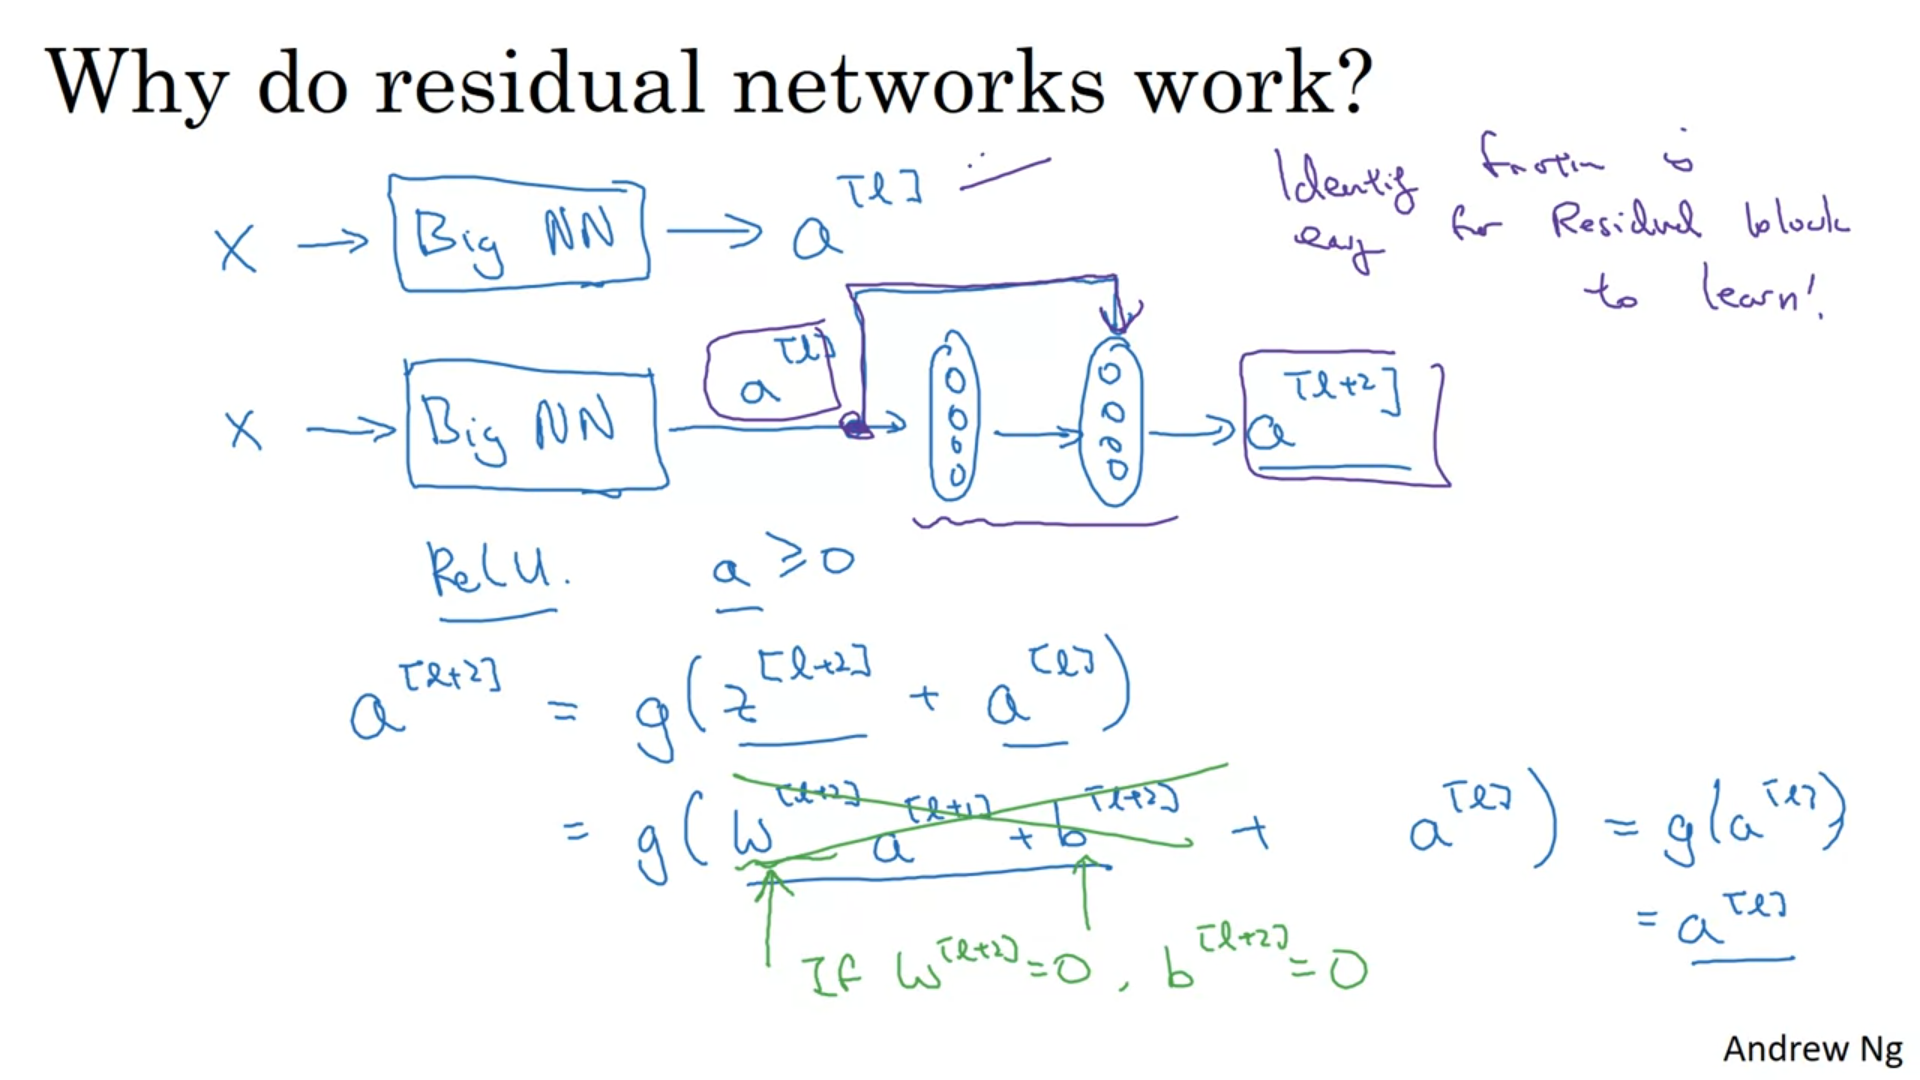 Why do residual networks work?
Identity function is
easy for Residual block
to learn!
X → Big NN → a^[l]
X → Big NN → a^[l] → a^[l+2]
ReLU. a ≥ 0
a^[l+2] = g(z^[l+2] + a^[l])
= g(W^[l+2] a^[l+1] + b^[l+2] + a^[l]) = g(a^[l])
= a^[l]
If W^[l+2] = 0, b^[l+2] = 0
Andrew Ng